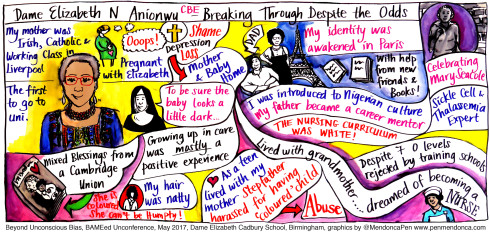 Dame Elizabeth N Anionwu CBE Breaking Through Despite the Odds
My mother was
Irish, Catholic &
Working Class in
Liverpool
The first
to go to
uni.
Ooops!
Pregnant
with Elizabeth
Shame
depression
Loss
Mother
& Baby
Home
To be sure the
baby looks a
little dark...
Mixed Blessings from
a Cambridge
Union
Growing up in care
was mostly a
positive experience
She is
coloured
She can't be Humpty!
My hair
was natty
DAD
My identity was
awakened in Paris
With help
from new
friends
& Books!
I was introduced to Nigerian culture
My father became a career mentor
THE NURSING CURRICULUM
WAS WHITE!
Celebrating
Mary Seacole
Sickle Cell &
Thalasemia
Expert
As a teen
lived with my
mother
stepfather
harassed for having
'coloured' child
Abuse
Lived with grandmother...
Despite 7 O levels
rejected by training schools
...dreamed of becoming a
NURSE
Beyond Unconscious Bias, BAMEed Unconference, May 2017, Dame Elizabeth Cadbury School, Birmingham, graphics by @MendoncaPen www.penmendonca.com